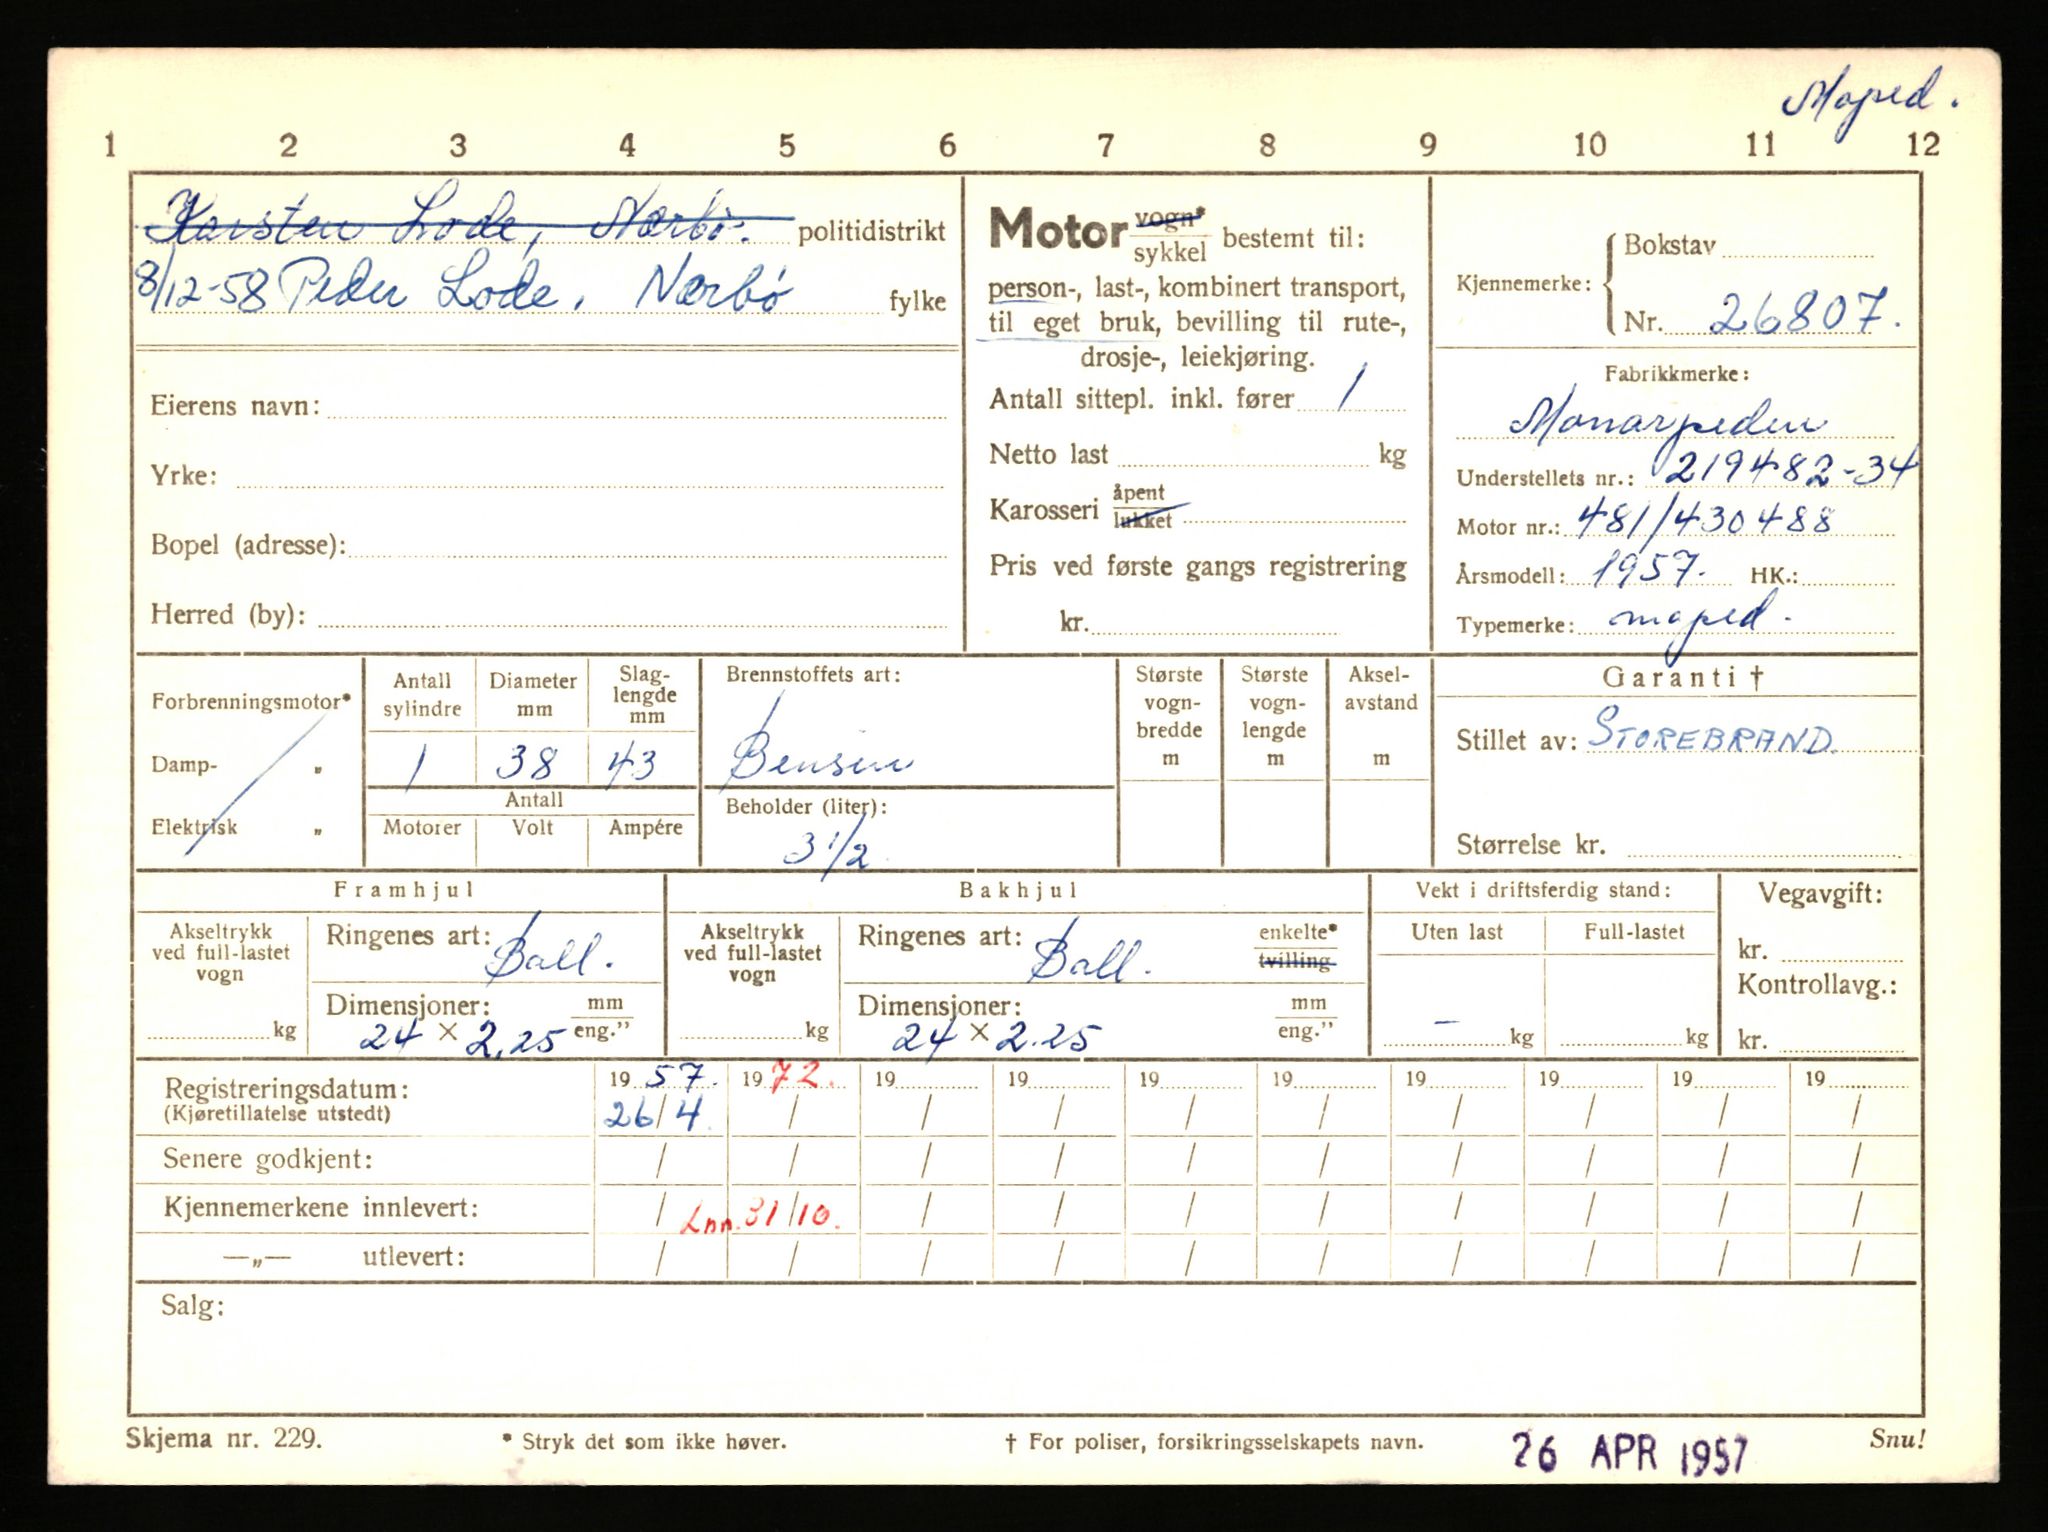 Moped.
1 2 3 4 5 6 7 8 9 10 11 12
Karsten Lode, Nærbø. politidistrikt
8/12-58 Peder Lode, Nærbø fylke
Eierens navn:
Yrke:
Bopel (adresse):
Herred (by):
Motor vogn* sykkel bestemt til:
person-, last-, kombinert transport,
til eget bruk, bevilling til rute-,
drosje-, leiekjøring.
Antall sittepl. inkl. fører 1
Netto last kg
Karosseri åpent lukket
Pris ved første gangs registrering
kr.
Kjennemerke: Bokstav
Nr. 26807.
Fabrikkmerke:
Monarpeden
Understellets nr.: 219482-34
Motor nr.: 481/430488
Årsmodell: 1957. HK.:
Typemerke: moped.
Forbrenningsmotor*
Damp- „
Elektrisk „
Antall sylindre
Diameter mm
Slaglengde mm
1 38 43
Antall
Motorer Volt Ampére
Brennstoffets art:
Bensin
Beholder (liter):
3 1/2
Største vognbredde m
Største vognlengde m
Akselavstand m
Garanti †
Stillet av: STOREBRAND.
Størrelse kr.
Framhjul
Akseltrykk ved full-lastet vogn
kg
Ringenes art: Ball.
Dimensjoner: mm eng."
24 × 2,25
Bakhjul
Akseltrykk ved full-lastet vogn
kg
Ringenes art: Ball. enkelte* tvilling
Dimensjoner: mm eng."
24 × 2.25
Vekt i driftsferdig stand:
Uten last Full-lastet
– kg kg
Vegavgift:
kr.
Kontrollavg.:
kr.
Registreringsdatum: 19 57. 19 72. 19 19 19 19 19 19 19 19
(Kjøretillatelse utstedt) 26/4. / / / / / / / / /
Senere godkjent: / / / / / / / / / /
Kjennemerkene innlevert: / Inn. 31/10. / / / / / / / /
—„— utlevert: / / / / / / / / / /
Salg:
Skjema nr. 229. * Stryk det som ikke høver. † For poliser, forsikringsselskapets navn. 26 APR 1957 Snu!